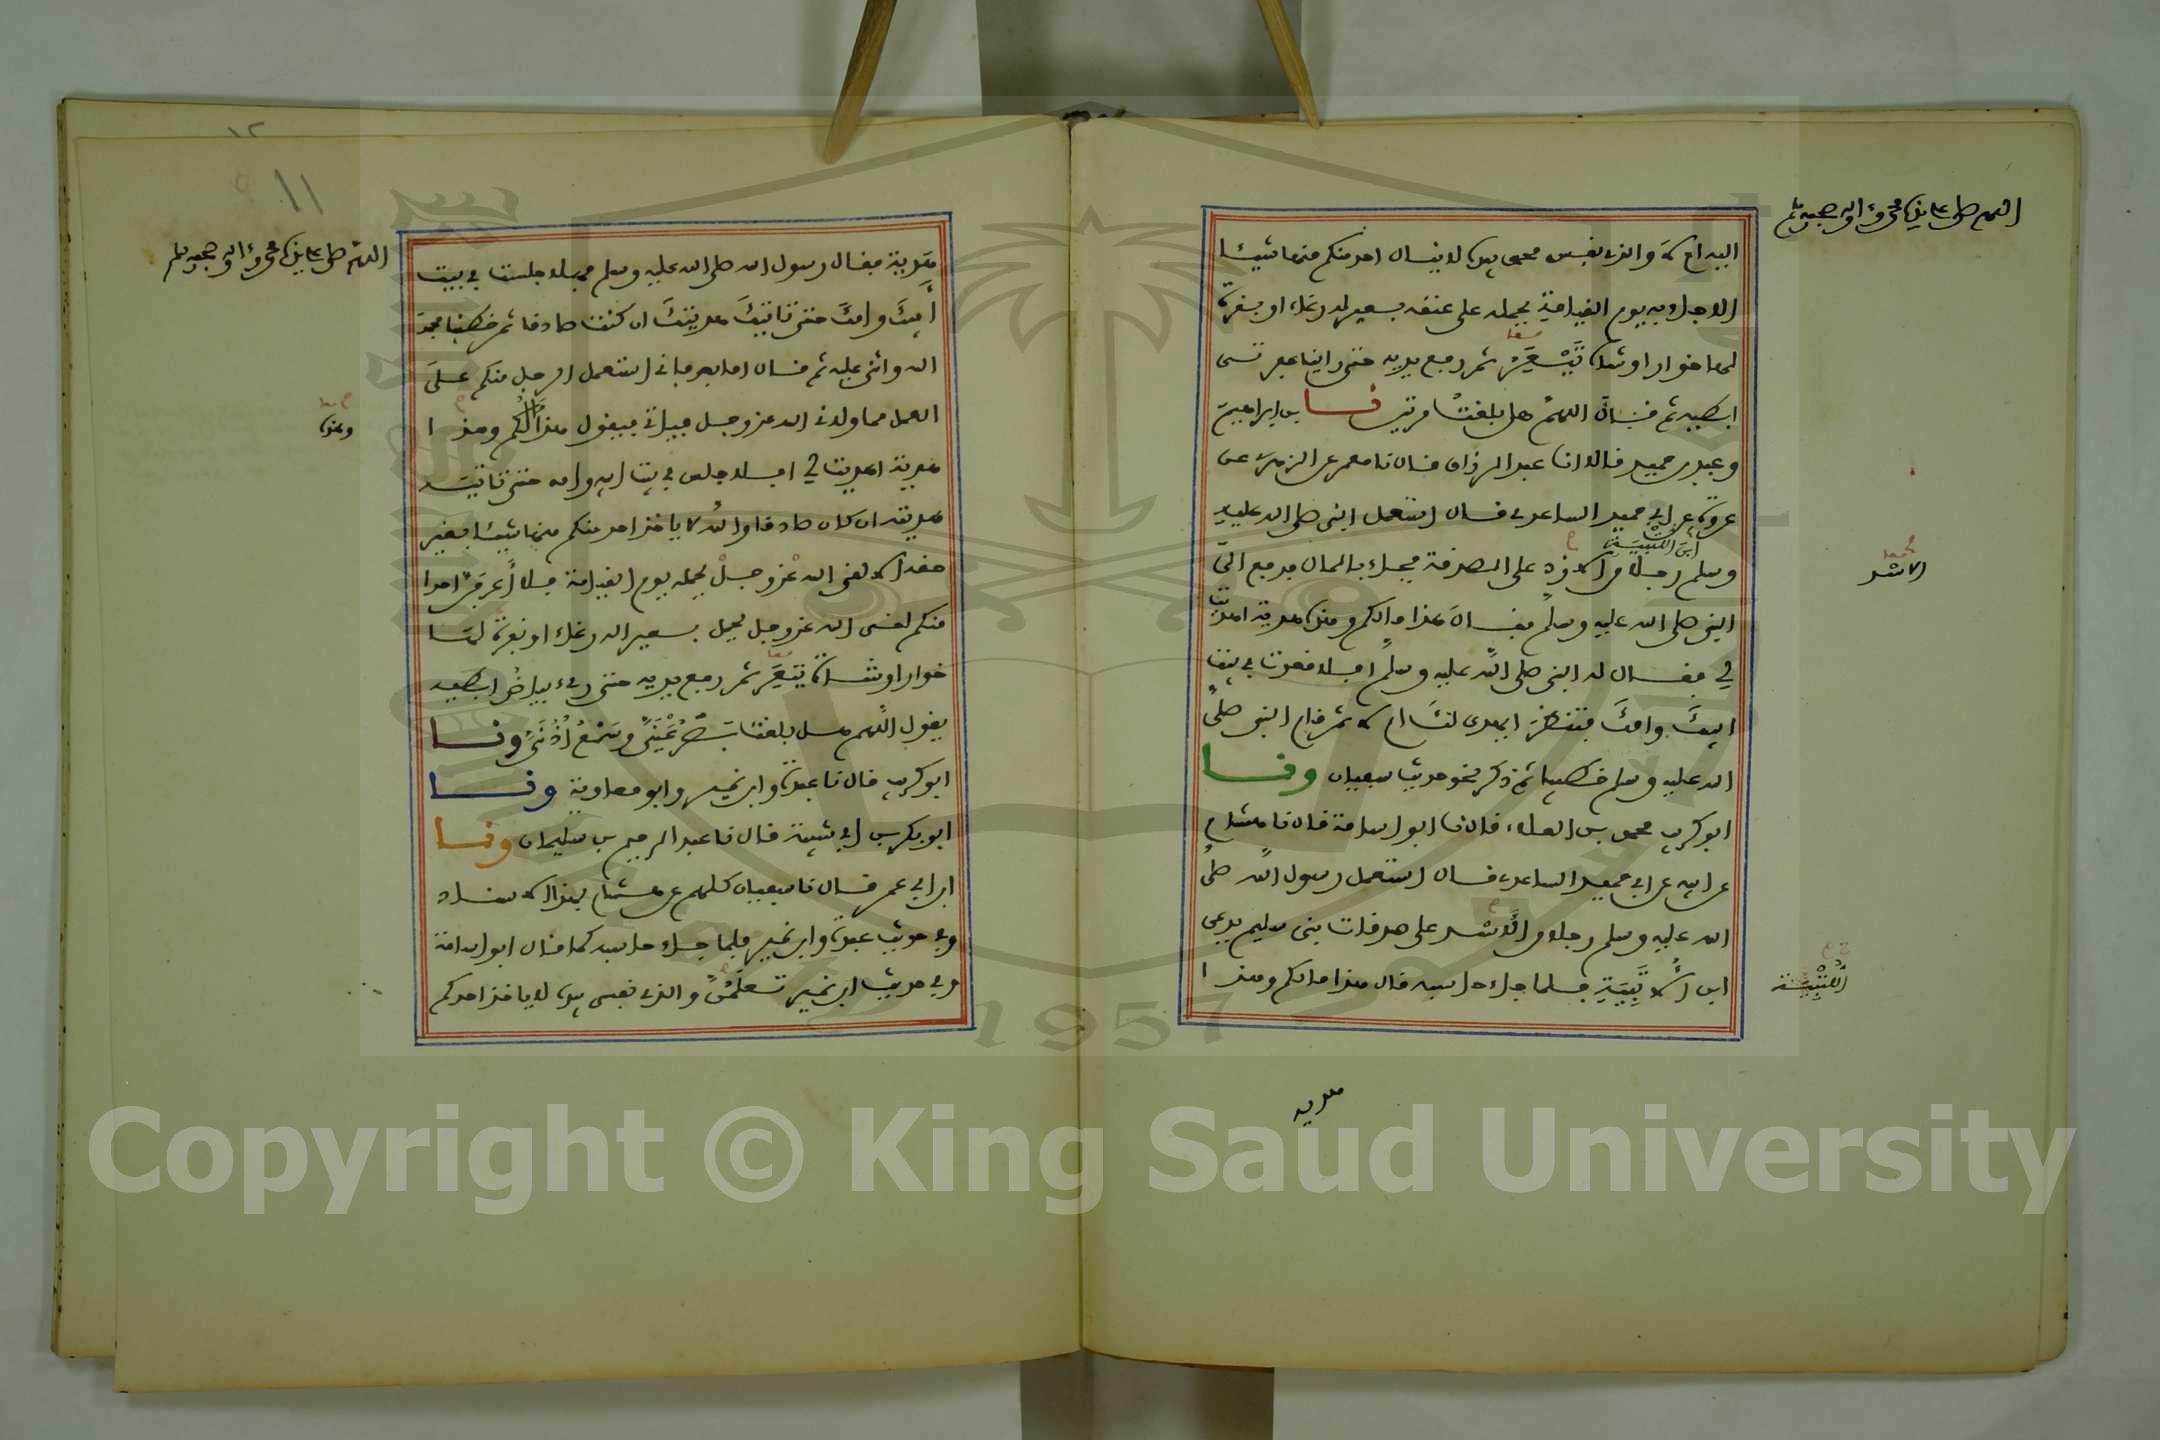 اللهم صل على سيدنا محمد وءاله وصحبه وسلم
اليه ام لا والذي نفس محمد بيده لا ينال احد منكم منها شيئا
الا جاء به يوم القيامة يحمله على عنقه بعير له رغاء او بقرة
لها خوار او شاة تَيْعَرُ ثم رفع يديه حتى راينا عفرتى
ابطيه ثم قال اللهم هل بلغت مرتين نا اسحاق بن ابراهيم
وعبد بن حميد قالا انا عبد الرزاق قال نا معمر عن الزهري عن
عروة عن ابي حميد الساعدي قال استعمل النبى صلى الله عليه
ابن اللتبية
وسلم رجلا من الازد على الصدقة فجاء بالمال فدفع الى
الاسد
النبى صلى الله عليه وسلم فقال هذا مالكم وهذه هدية اهديت
لي فقال له النبى صلى الله عليه وسلم افلا قعدت في بيت
ابيك وامك فتنظر ايهدى لك ام لا ثم قام النبى صلى
الله عليه وسلم خطيبا ثم ذكر نحو حديث سفيان ونا
ابو كريب محمد بن العلاء قال نا ابو اسامة قال نا هشام
عن ابيه عن ابي حميد الساعدي قال استعمل رسول الله صلى
الله عليه وسلم رجلا من الاسد على صدقات بنى سليم يدعى
ابن الاتبية فلما جاء حاسبه قال هذا مالكم وهذا
اللتبية
هديه
١٢
١١
اللهم صل على سيدنا محمد وءاله وصحبه وسلم
هدية فقال رسول الله صلى الله عليه وسلم فهلا جلست في بيت
ابيك وامك حتى تاتيك هديتك ان كنت صادقا ثم خطبنا فحمد
الله واثنى عليه ثم قال اما بعد فاني استعمل الرجل منكم على
العمل مما ولاني الله عز وجل فياتي فيقول هذا مالكم وهذا
وهذه
هدية اهديت لي افلا جلس في بيت ابيه وامه حتى تاتيه
هديته ان كان صادقا والله لا ياخذ احد منكم منها شيئا بغير
حقه الا لقى الله عز وجل يحمله يوم القيامة فلا أعرفن احدا
منكم لقى الله عز وجل يحمل بعيرا له رغاء او بقرة لها
خوار او شاة تيعر ثم رفع يديه حتى رءي بياض ابطيه
يقول اللهم هل بلغت بَصُرَ عَيْنَيَّ وسَمْعُ أُذُنَيَّ ونا
ابو كريب قال نا عبدة وابن نمير وابو معاوية ونا
ابو بكر بن ابي شيبة قال نا عبد الرحيم بن سليمان ونا
ابن ابي عمر قال نا سفيان كلهم عن هشام بهذا الاسناد
وفي حديث عبدة وابن نمير فلما جاء حاسبه كما قال ابو اسامة
وفي حديث ابن نمير تعلمن والذي نفسى بيده لا ياخذ احدكم
Copyright © King Saud University
1957